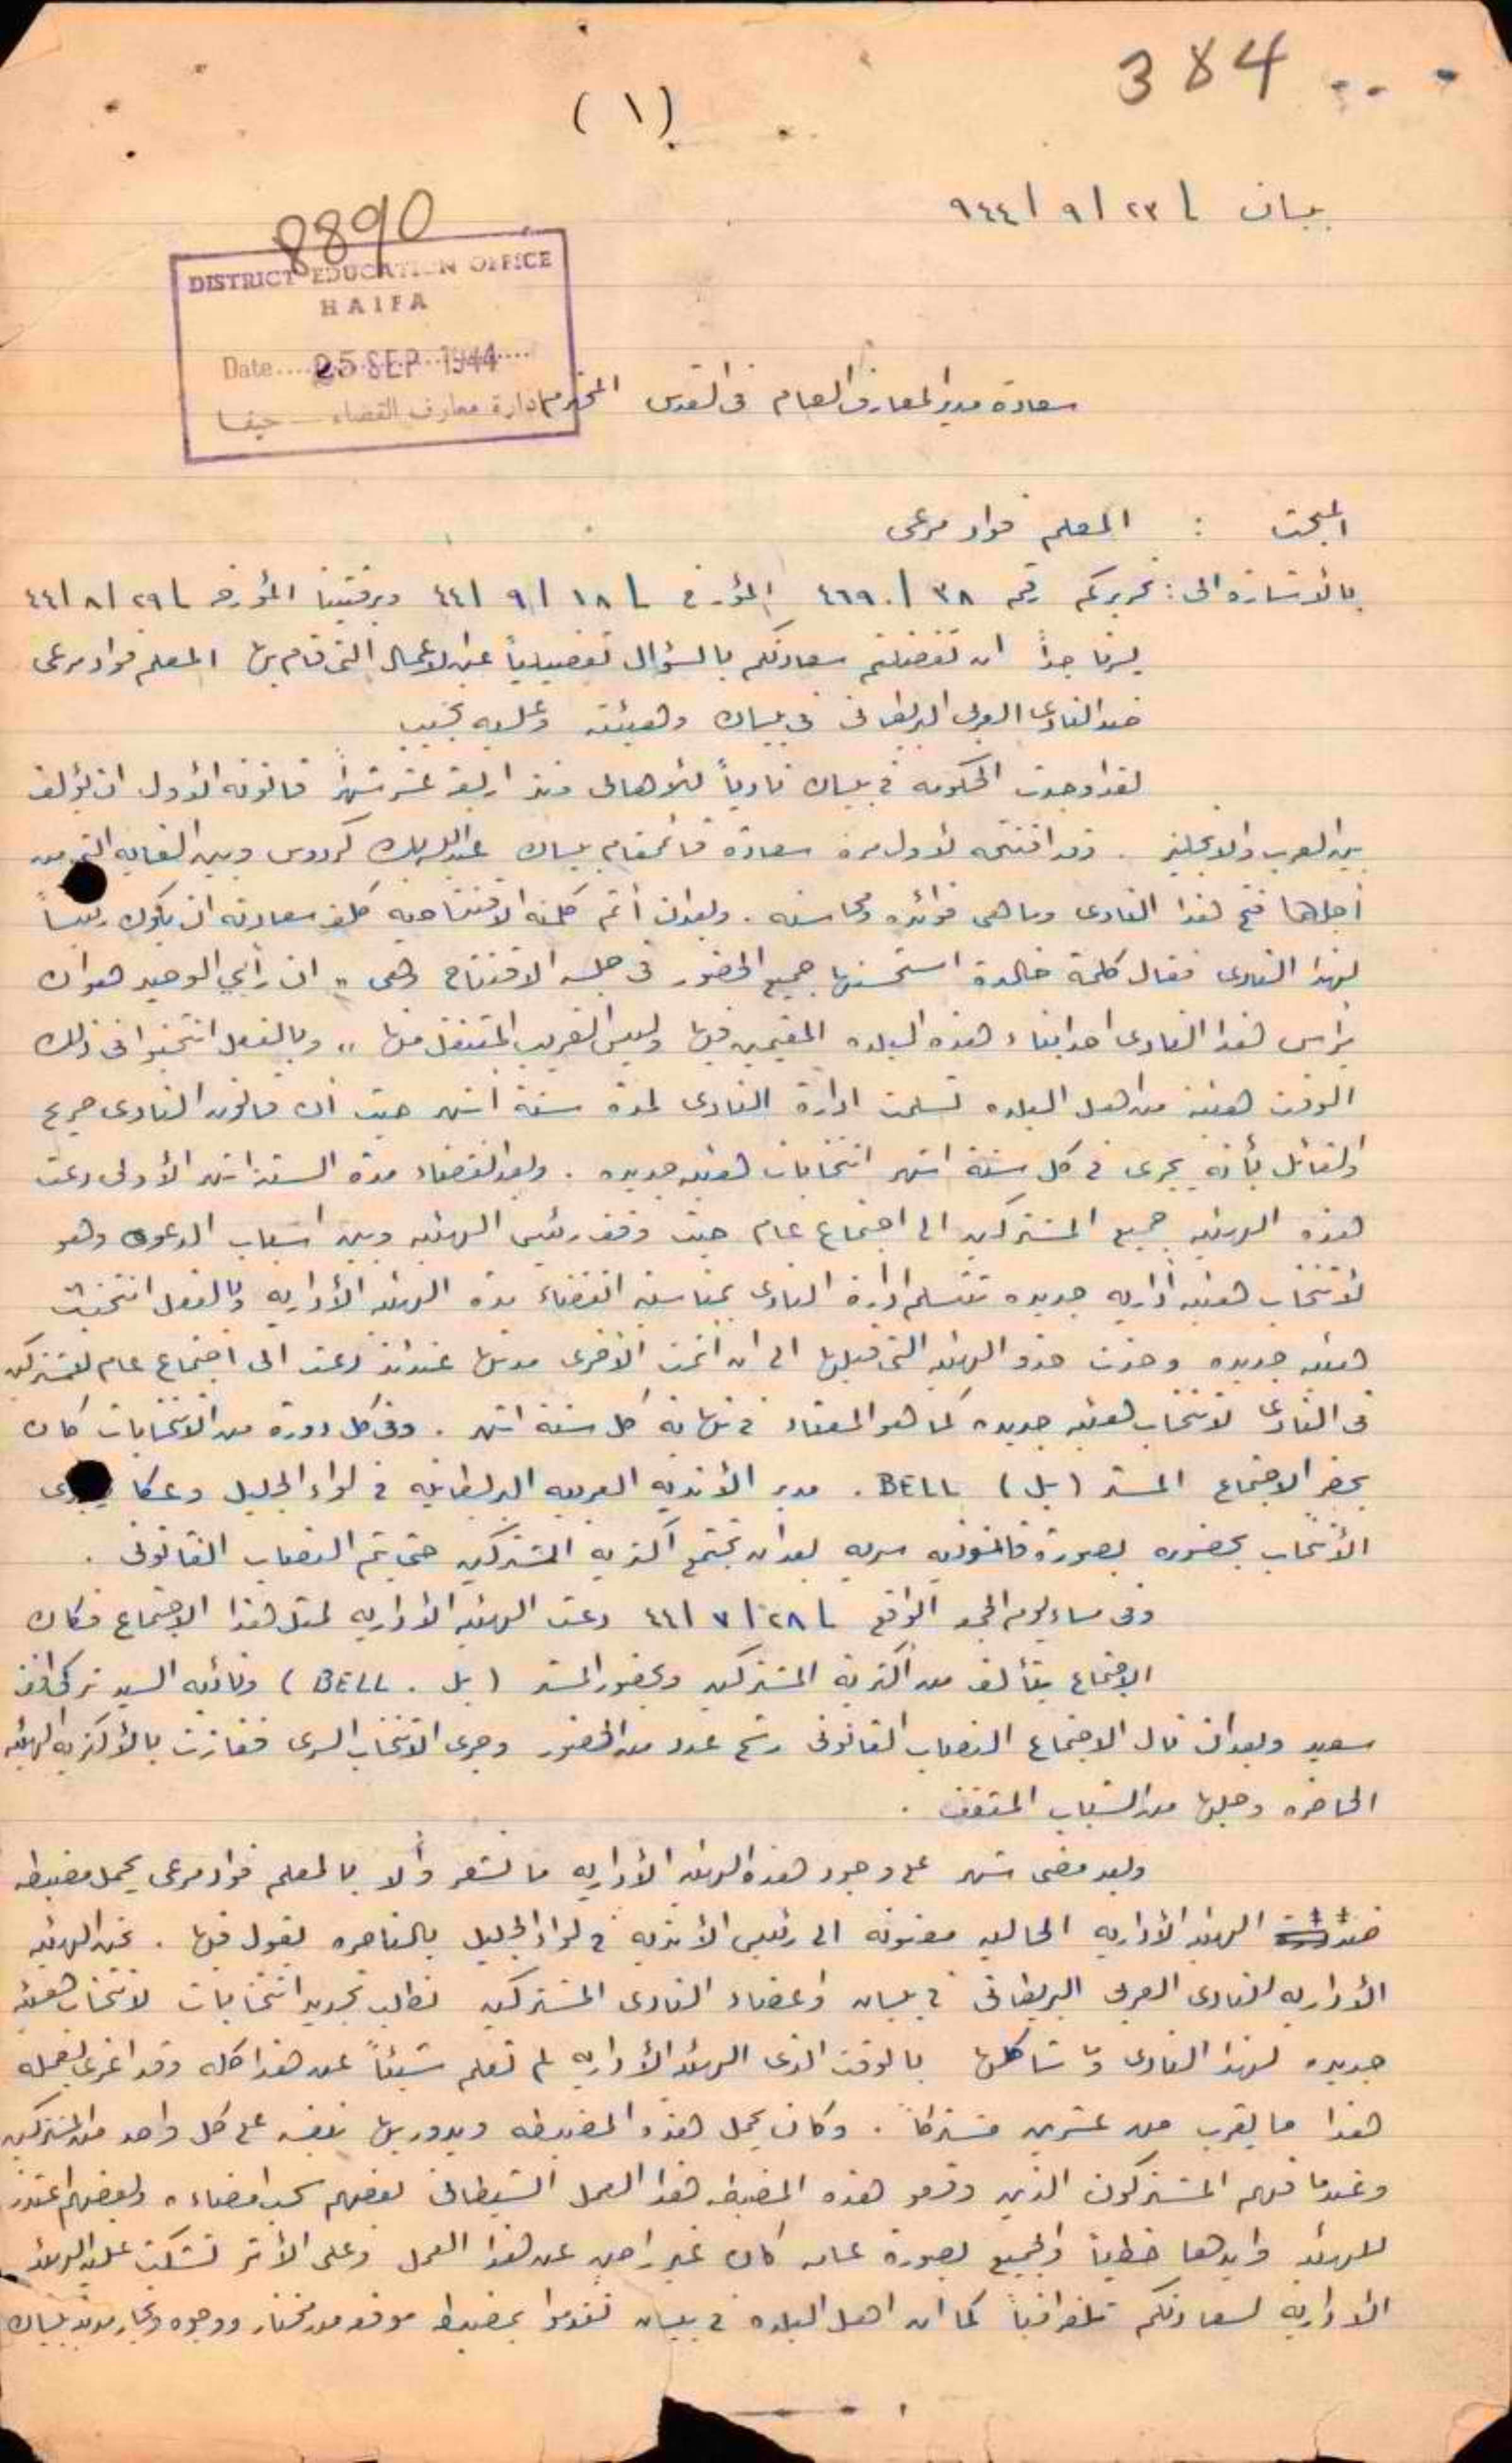 384
(١)
بيسان ٢٣/٩/٩٤٤
8890
DISTRICT EDUCATION OFFICE
HAIFA
Date.... 25 SEP 1944
ادارة معارف القضاء - حيفا
سعادة مدير المعارف العام في القدس المحترم
المبحث : المعلم فواد مرعي
بالأشارة الى : تحريركم رقم ٣٨/٤٦٩٠ المؤرخ ١٨/٩/٤٤ وبرقيتنا المؤرخه ٢٩/٨/٤٤
يسرنا جداً ان تفضلتم سعادتكم بالسؤال تفصيلياً عن الاعمال التي قام بها المعلم فواد مرعي
ضد النادي العربي البريطاني في بيسان وهيئته وعليه نجيب
لقد اوجدت الحكومه في بيسان نادياً للأهالي منذ اربعة عشر شهراً قانونه الأول ان يؤلف
بين العرب والانجليز . وقد افتتحه لأول مرة سعادة قائمقام بيسان عبدالله بك كردوس وبين الغايه التي من
اجلها فتح هذا النادي وما هي فوائده ومحاسنه . وبعد ان أتم كلمته الافتتاحيه كلف سعادته ان يكون رئيساً
لهذا النادي فقال كلمة خالدة استحسنها جميع الحضور في جلسه الافتتاح وهي " ان رأيي الوحيد هو ان
يرأس هذا النادي احد ابناء هذه البلده المقيمين فيها وليس الغريب المتنقل منها " وبالفعل انتخبوا في ذلك
الوقت هيئة من اهل البلده تسلمت ادارة النادي لمدة ستة اشهر حيث أن قانون النادي صريح
والقائل بأنه يجري في كل ستة اشهر انتخابات هيئه جديده . وبعد انقضاء مدة الستة اشهر الأولى دعت
هذه الهيئه جميع المشتركين الى اجتماع عام حيث وقف رئيس الهيئه وبين اسباب الدعوه وهو
لأنتخاب هيئه أداريه جديده تتسلم ادارة النادي بمناسبة انقضاء مدة الهيئه الأداريه وبالفعل انتخبت
هيئه جديده وحذت حذو الهيئه التي قبلها الى ان اتمت الاخرى مدتها عندئذ دعت الى اجتماع عام للمشتركين
في النادي لانتخاب هيئه جديده كما هو المعتاد في نهاية كل ستة اشهر . وفي كل دورة من الانتخابات كان
يحضر الاجتماع المستر (بل) BELL . مدير الأنديه العربيه البريطانيه في لواء الجليل وعكا
الأنتخاب بحضوره بصورة قانونيه سريه بعد ان تجتمع اكثريه المشتركين حتى يتم النصاب القانوني .
وفي مساء يوم الجمعه الواقع ٢٨/٧/٤٤ دعت الهيئه الأداريه لمثل هذا الاجتماع فكان
الاجتماع يتألف من اكثرية المشتركين وبحضور المستر (بل . BELL) ونائبه السيد تركي افندي
سعيد وبعد ان نال الاجتماع النصاب القانوني رشح عدد من الحضور وجرى الانتخاب السري ففازت بالأكثريه الهيئه
الحاضره وجلها من الشباب المثقف .
وبعد مضي شهر على وجود هذه الهيئه الأداريه ما نشعر وألا بالمعلم فواد مرعي يحمل مضبطه
ضد الهيئه الأداريه الحاليه معنونه الى رئيس الأنديه في لواء الجليل بالناصره يقول فيها . نحن الهيئه
الأداريه للنادي العربي البريطاني في بيسان واعضاء النادي المشتركين نطلب تجديد انتخابات لانتخاب هيئه
جديده لهذا النادي وما شاكلها بالوقت الذي الهيئه الأداريه لم تعلم شيئاً عن هذا كله وقد اغرى بعمله
هذا ما يقرب من عشرين مشتركاً . وكان يحمل هذه المضبطه ويدور بها بنفسه على كل واحد من المشتركين
وعندما فهم المشتركون الذين وقعو هذه المضبطه هذا العمل الشيطاني بعضهم سحب امضاءه وبعضهم اعتذر
للهيئه وايدها خطياً والجميع بصورة عامه كان غير راضٍ عن هذا العمل وعلى الأثر تشكت عليه الهيئه
الأداريه لسعادتكم تلغرافياً كما ان اهل البلده في بيسان تقدموا بمضبطه موقعه من مختار ووجوه وتجار مدينة بيسان